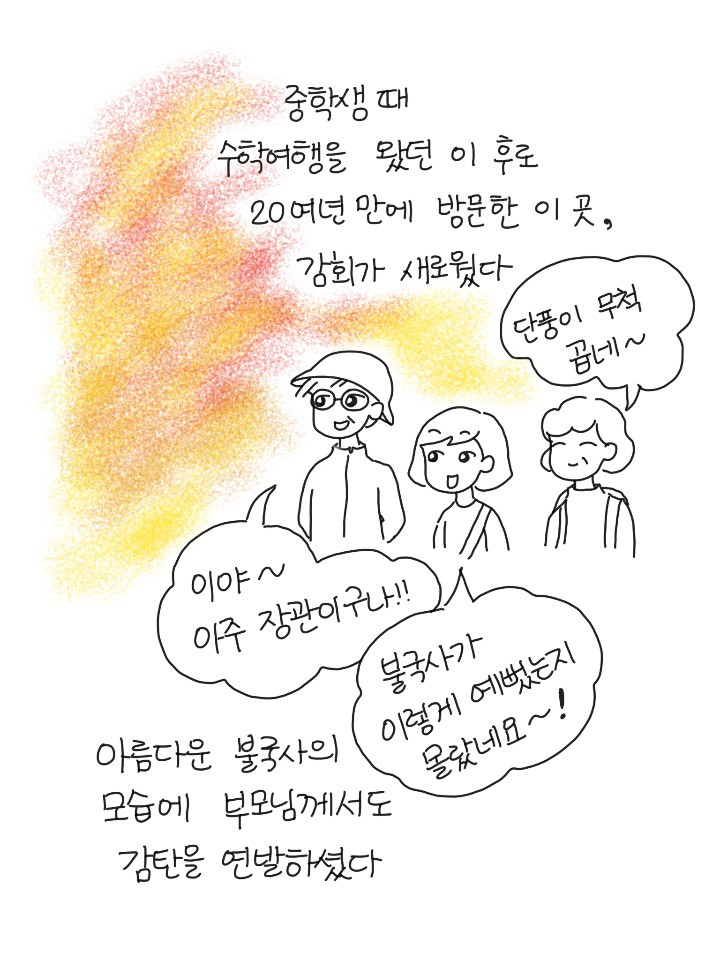 중학생 때
수학여행을 왔던 이 후로
20여년 만에 방문한 이 곳,
감회가 새로웠다
단풍이 무척
곱네~
이야~
아주 장관이구나!!
불국사가
이렇게 예뻤는지
몰랐네요~!
아름다운 불국사의
모습에 부모님께서도
감탄을 연발하셨다